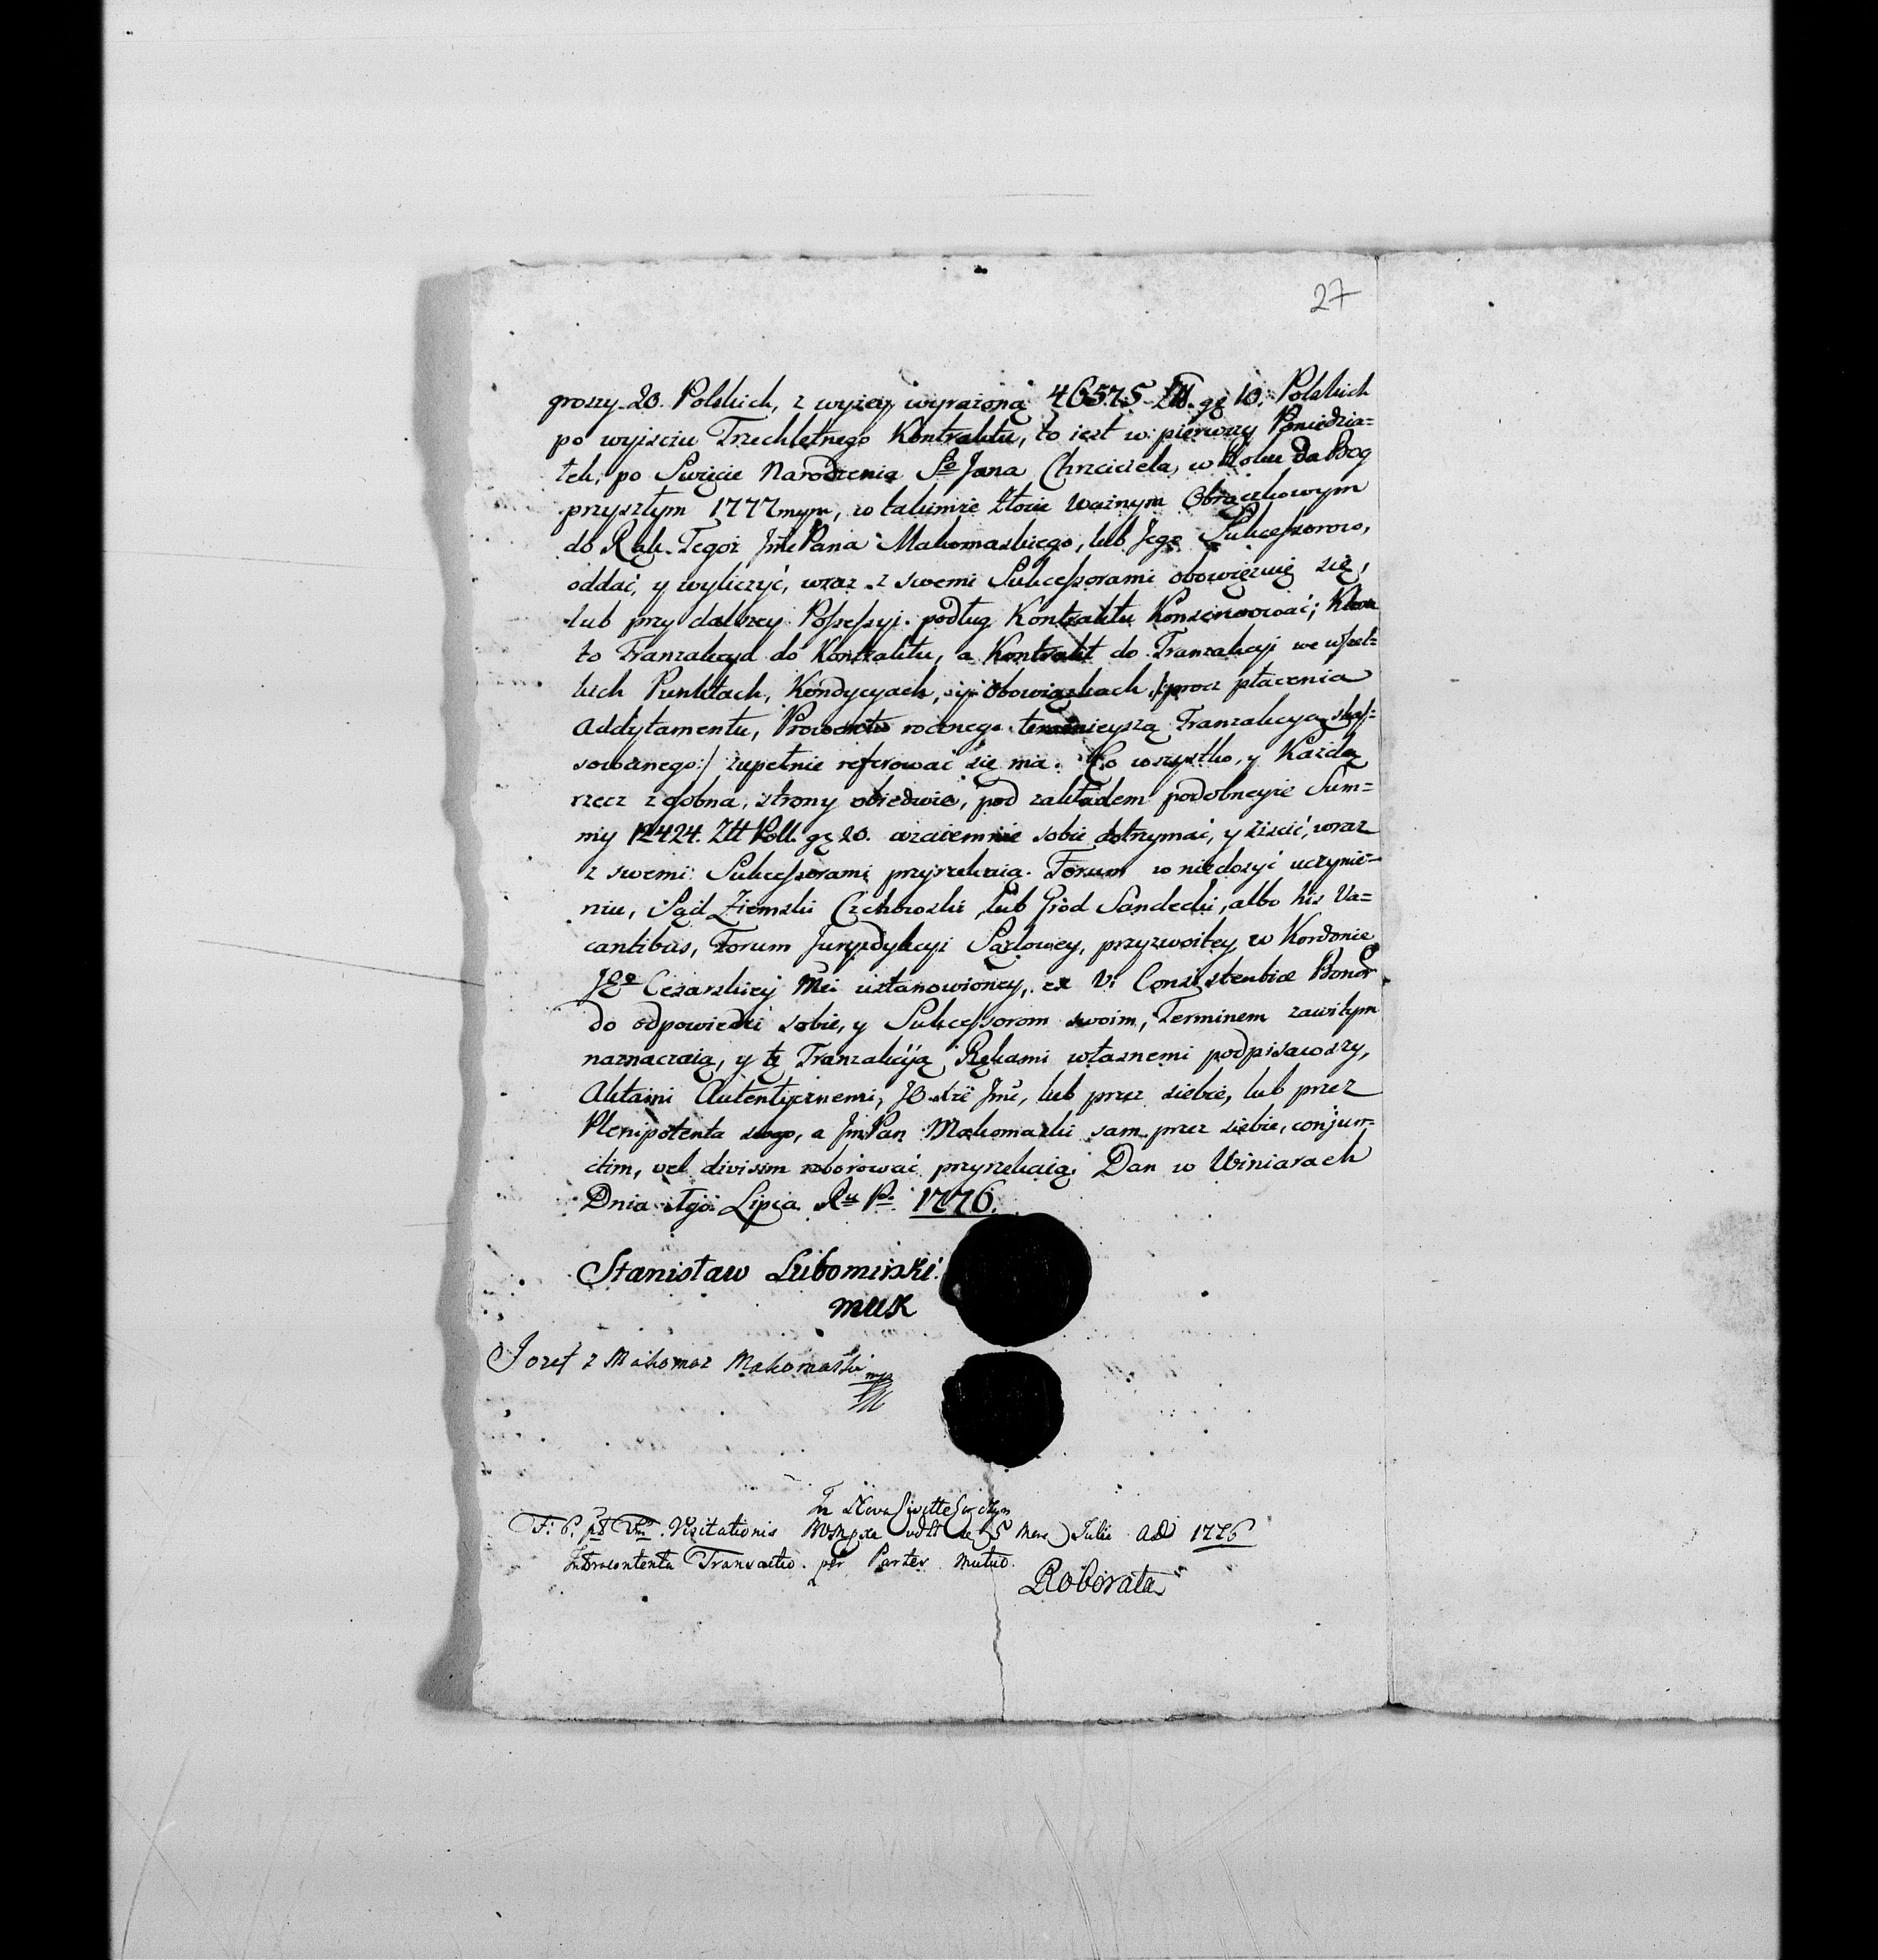 27
groszy 20. Polskich, z wyżey wyrażoną 46575 Złł. gę 10. Polskich
po wyjściu Trzechletnego Kontraktu, to iest w pierwszy Poniedzia=
łek, po Swięcie Narodzenia Sgo Jana Chrzciciela, w Roku da Bog
przyszłym 1777mym, w takimże złocie ważnym Obrączkowym
do Rąk Tegoż Jmć Pana Makomaskiego, lub Jego Sukceſsorow,
oddać, y wyliczyć, wraz z swemi Sukceſsorami obowięzuię się,
lub przy dalszey Poſseſsyi podług Kontraktu Konserwować;
to Tranzakcya do Kontraktu, a Kontrakt do Tranzakcyi we wſzel=
kich Punktach, Kondycyach, y Obowiązkach /:procz płacenia
Addytamentu, Prowentu rocznego teraznieyszą Tranzakcyą skaſ=
sowanego:/ zupełnie referować się ma. Co wszystko, y Każdą
rzecz zgobna, strony obiedwie, pod zakładem podobneyże Sum=
my 12424. Złł Poll. gę 20. wzaiemnie sobie dotrzymać, y ziścić, wraz
z swemi Sukceſsorami przyrzekaią. Forum w niedosyć uczynie=
niu, Sąd Ziemski Czchowski, lub Grod Sandecki, albo his Va=
cantibus, Forum Juryzdykcyi Sądowey, przyzwoitey w Kordonie
Jgo Cesarskiey Mci ustanowioney, ex Vi Consistentiæ Bonor
do odpowiedzi sobie, y Sukceſsorom swoim, Terminem zawitym
naznaczaią, y tę Tranzakcyią Rękami własnemi podpisawszy,
Aktami Autentycznemi, JO. Xże Jmć, lub przez siebie, lub przez
Plenipotenta swego, a JmPan Makomaski sam przez siebie, conjun=
ctim, vel divisim roborować przyrzekaią. Dan w Winiarach
Dnia Lipca Ru Po 1776.
Stanisław Lubomirski
MWK
Jozef z Makomaz Makomaski mp
In
F: 6. Visitationis 5 Mens Julii AD 1776
Introcontenta Transactio per Partes mutuo
Roborata